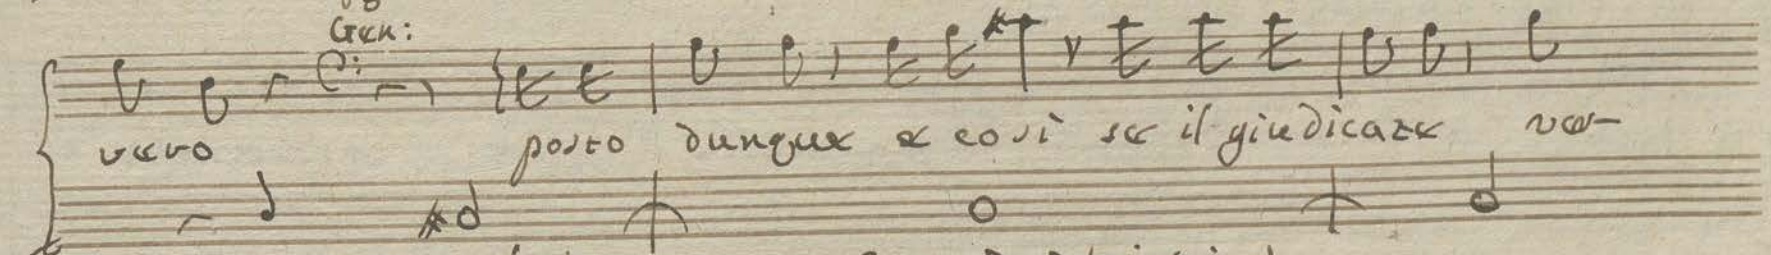 Gen:
vero posto dunque e così se il giudicate ver-